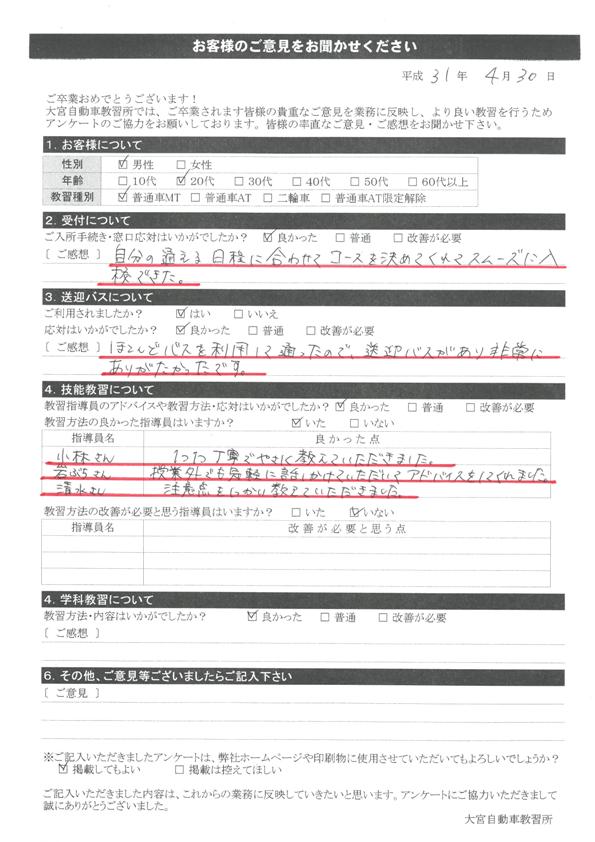 お客様のご意見をお聞かせください
平成 31 年 4 月 30 日
ご卒業おめでとうございます！
大宮自動車教習所では、ご卒業されます皆様の貴重なご意見を業務に反映し、より良い教習を行うため
アンケートのご協力をお願いしております。皆様の率直なご意見・ご感想をお聞かせ下さい。
1. お客様について
性別 ☑男性 □女性
年齢 □10代 ☑20代 □30代 □40代 □50代 □60代以上
教習種別 ☑普通車MT □普通車AT □二輪車 □普通車AT限定解除
2. 受付について
ご入所手続き・窓口応対はいかがでしたか？ ☑良かった □普通 □改善が必要
[ ご感想 ] 自分の通える日程に合わせてコースを決めてくれてスムーズに入
校できた。
3. 送迎バスについて
ご利用されましたか？ ☑はい □いいえ
応対はいかがでしたか？ ☑良かった □普通 □改善が必要
[ ご感想 ] ほとんどバスを利用して通ったので、送迎バスがあり非常に
ありがたかったです。
4. 技能教習について
教習指導員のアドバイスや教習方法・応対はいかがでしたか？ ☑良かった □普通 □改善が必要
教習方法の良かった指導員はいますか？ ☑いた □いない
指導員名 良かった点
小林さん 1つ1つ丁寧でやさしく教えていただきました。
岩ぶちさん 授業外でも気軽に話しかけていただいてアドバイスをしてくれました。
清水さん 注意点をしっかり教えていただきました。
教習方法の改善が必要と思う指導員はいますか？ □いた ☑いない
指導員名 改善が必要と思う点
4. 学科教習について
教習方法・内容はいかがでしたか？ ☑良かった □普通 □改善が必要
[ ご感想 ]
6. その他、ご意見等ございましたらご記入下さい
[ ご意見 ]
※ご記入いただきましたアンケートは、弊社ホームページや印刷物に使用させていただいてもよろしいでしょうか？
☑掲載してもよい □掲載は控えてほしい
ご記入いただきました内容は、これからの業務に反映していきたいと思います。アンケートにご協力いただきまして
誠にありがとうございました。
大宮自動車教習所